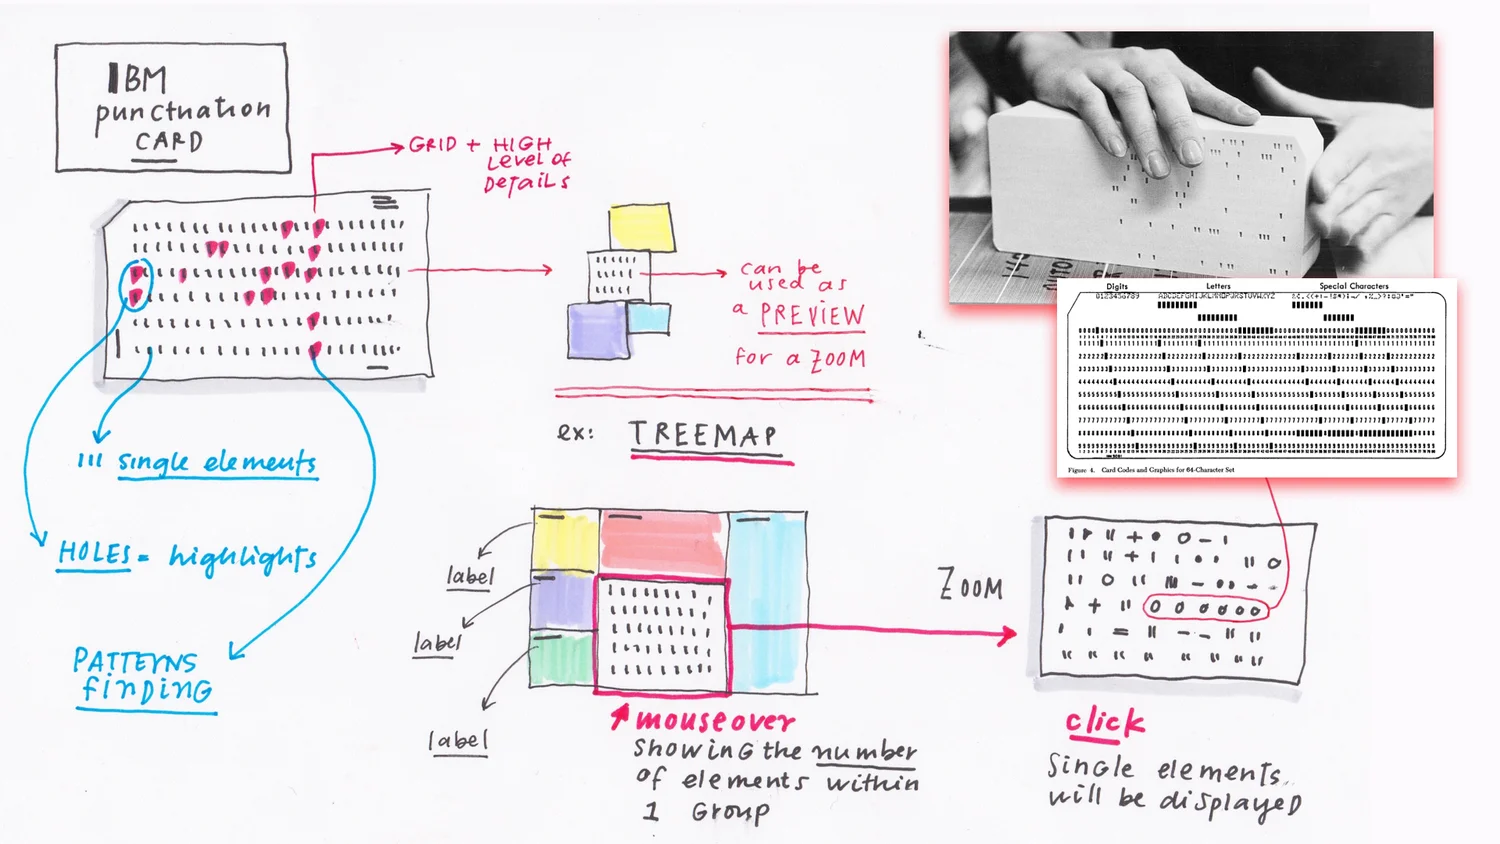 IBM
punctuation
CARD
GRID + HIGH
Level of
Details
can be
used as
a PREVIEW
for a ZOOM
ex: TREEMAP
III single elements
HOLES = highlights
PATTERNS
finDiNG
label
label
label
mouseover
Showing the number
of elements within
1 Group
ZOOM
click
Single elements
will be displayed
Digits
Letters
Special Characters
0123456789
ABCDEFGHIJKLMNOPQRSTUVWXYZ
Figure 4. Card Codes and Graphics for 64-Character Set